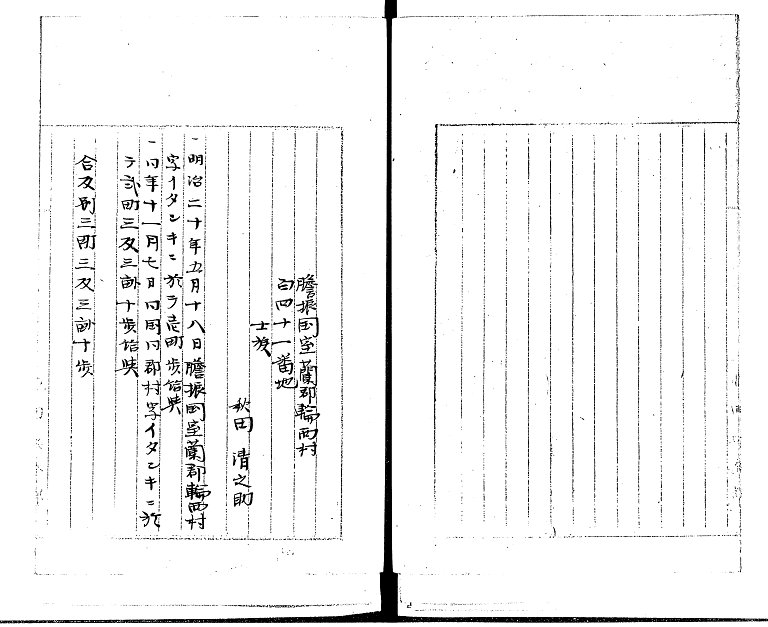 膽振国室蘭郡輪西村
百四十一番地
士族
秋田 清之助
一明治二十年五月十八日膽振国室蘭郡輪西村
字イタンキニ於テ壱町歩給與
一同年十一月七日同国同郡村字イタンキニ於
テ弐町三反三畝十歩給與
合反別三町三反三畝十歩